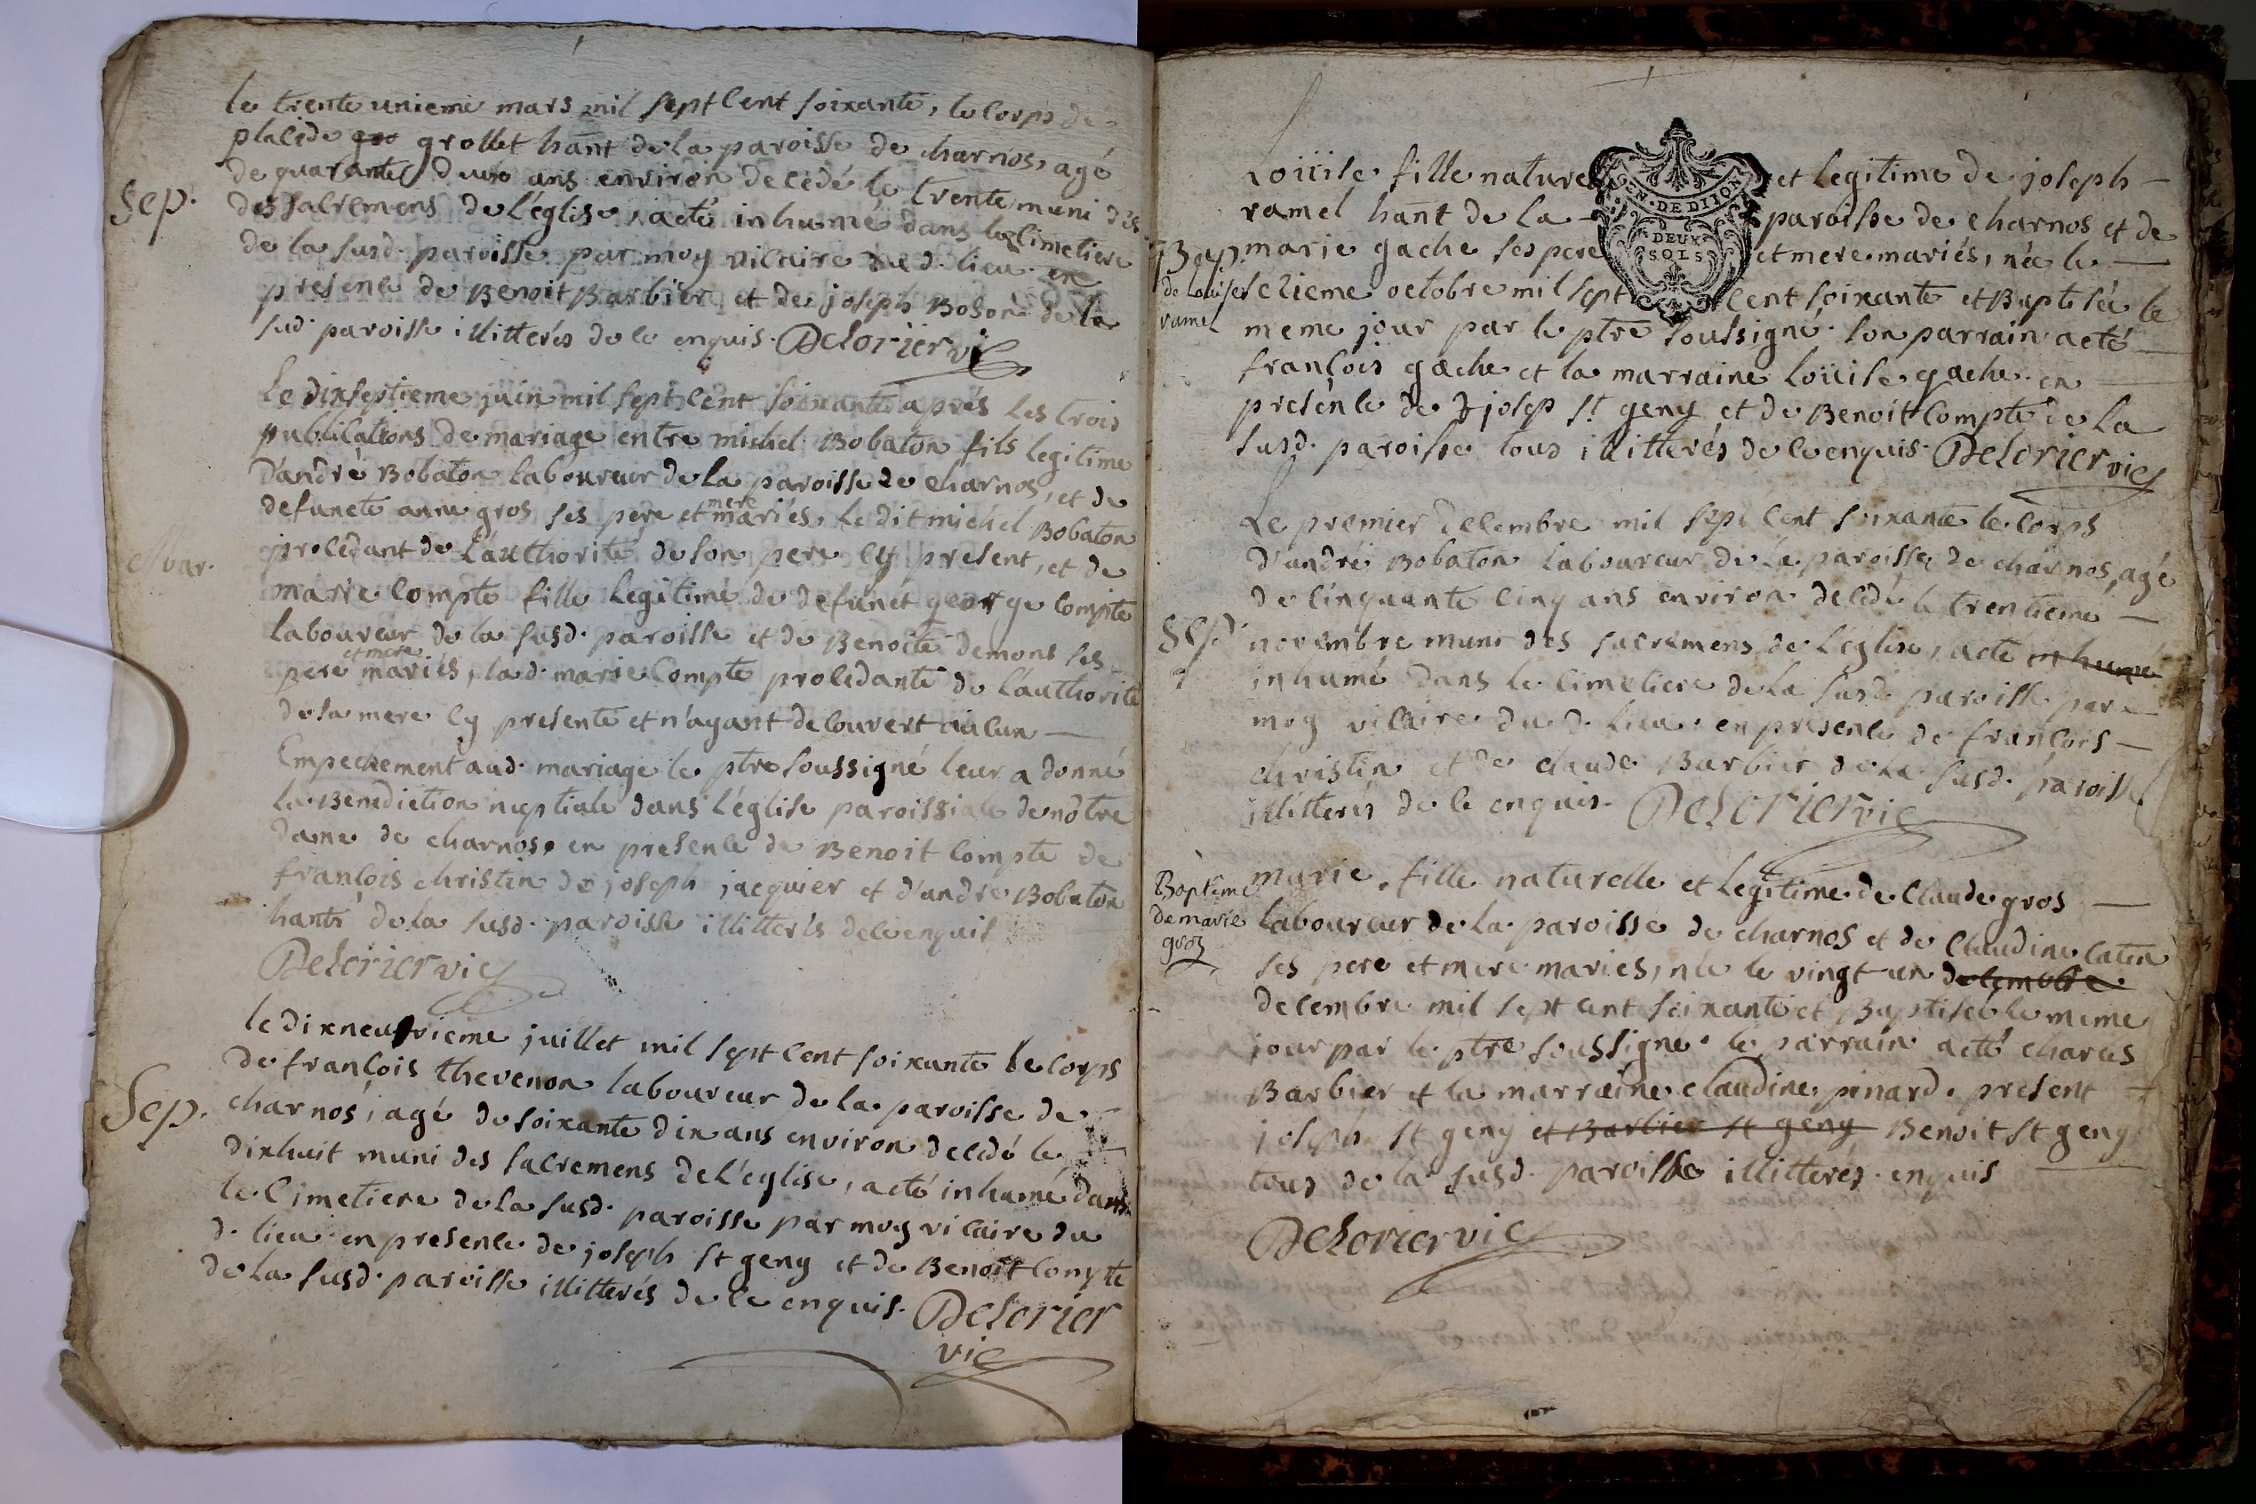 le trente unieme mars mil sept cent soixante, le corps de
placide gro grollet hant de la paroisse de charnos, agé
de quarante deux ans environ decedé le trente muni des
Sep.
des sacremens de l'église, a eté inhumé dans le cimetiere
de la susd. paroisse par moy vicaire du d. lieu en
présence de Benoit Barbier et de joseph Boson de la
sud. paroisse illitterés de ce enquis. Delorier vic
Le dixseptieme juin mil sept cent soixante aprés les trois
publications de mariage entre michel Bobaton fils legitime
d'andré Bobaton laboureur de la paroisse de charnos, et de
defuncte anne gros ses pere et mere mariés, le dit michel Bobaton
Mar.
procedant de l'authorité de son pere cy present, et de
marie Compte fille legitime de defunct george compte
laboureur de la susd. paroisse et de Benoite demons ses
pere et mere mariés, la d. marie Compte procedante de l'authorité
de sa mere cy presente et n'ayant decouvert aucun
Empechement aud. mariage le ptre soussigné leur a donné
la Benediction nuptiale dans l'église paroissiale de nôtre
dame de charnos, en presence de Benoit Compte de
françois christin de joseph jacquier et d'andré Bobaton
hants de la susd. paroisse illitterés de ce enquis
Delorier vic
le dixneuvieme juillet mil sept cent soixante le corps
de françois thevenon laboureur de la paroisse de
Sep.
charnos, agé de soixante dix ans environ decedé le
dixhuit muni des sacremens de l'église, a eté inhumé dans
le Cimetiere de la susd. paroisse par moy vicaire du
d. lieu en presence de joseph st geny et de Benoit Compte
de la susd. paroisse illitterés de ce enquis. Delorier
vic
GEN. DE DIJON
DEUX
SOLS
Loüise fille naturelle et legitime de joseph
ramel hant de la paroisse de charnos et de
Bap.
de Loüise
ramel
marie gache ses pere et mere mariés, née le
sezieme octobre mil sept cent soixante et Baptisée le
meme jour par le ptre soussigné. son parrain a eté
françois gache et la marraine Loüise gache en
présence de joseph st geny et de Benoit Compte de la
susd. paroisse tous illitterés de ce enquis. Delorier vic
Le premier decembre mil sept cent soixante le corps
d'andré Bobaton laboureur de la paroisse de charnos, agé
de cinquante cinq ans environ decedé le trentieme
Sep.
novembre muni des sacremens de l'église, a eté inhumé
inhumé dans le cimetiere de la susd. paroisse par
moy vicaire du d. lieu en presence de françois
christin et de claude Barbier de la susd. paroisse
illitterés de ce enquis. Delorier vic
Baptême
de marie
gros
marie, fille naturelle et legitime de Claude gros
laboureur de la paroisse de charnos et de Claudine Catin
ses pere et mere mariés, née le vingt un decembre
decembre mil sept cent soixante et Baptisée le meme
jour par le ptre soussigné. le parrain a eté charles
Barbier et la marraine Claudine pinard. present
joseph st geny et Barbier st geny Benoit st geny
tous de la susd. paroisse illitterés enquis
Delorier vic